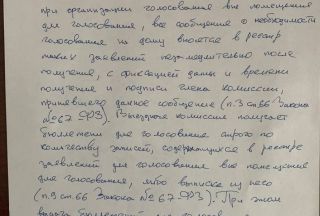 при организации голосования вне помещения
для голосования, все сообщения о необходимости
голосования на дому вносятся в реестр
таких заявлений незамедлительно после
получения, с фиксацией даты и времени
получения и подписи члена комиссии,
принявшего данное сообщение (п.3 ст.66 Закона
№67 ФЗ). Выездное комиссии получает
бюллетени для голосования строго по
количеству записей, содержащихся в реестре
заявлений для голосования вне помещения
для голосования, либо выписке из него
(п.9 ст.66 Закона №67-ФЗ). При этом